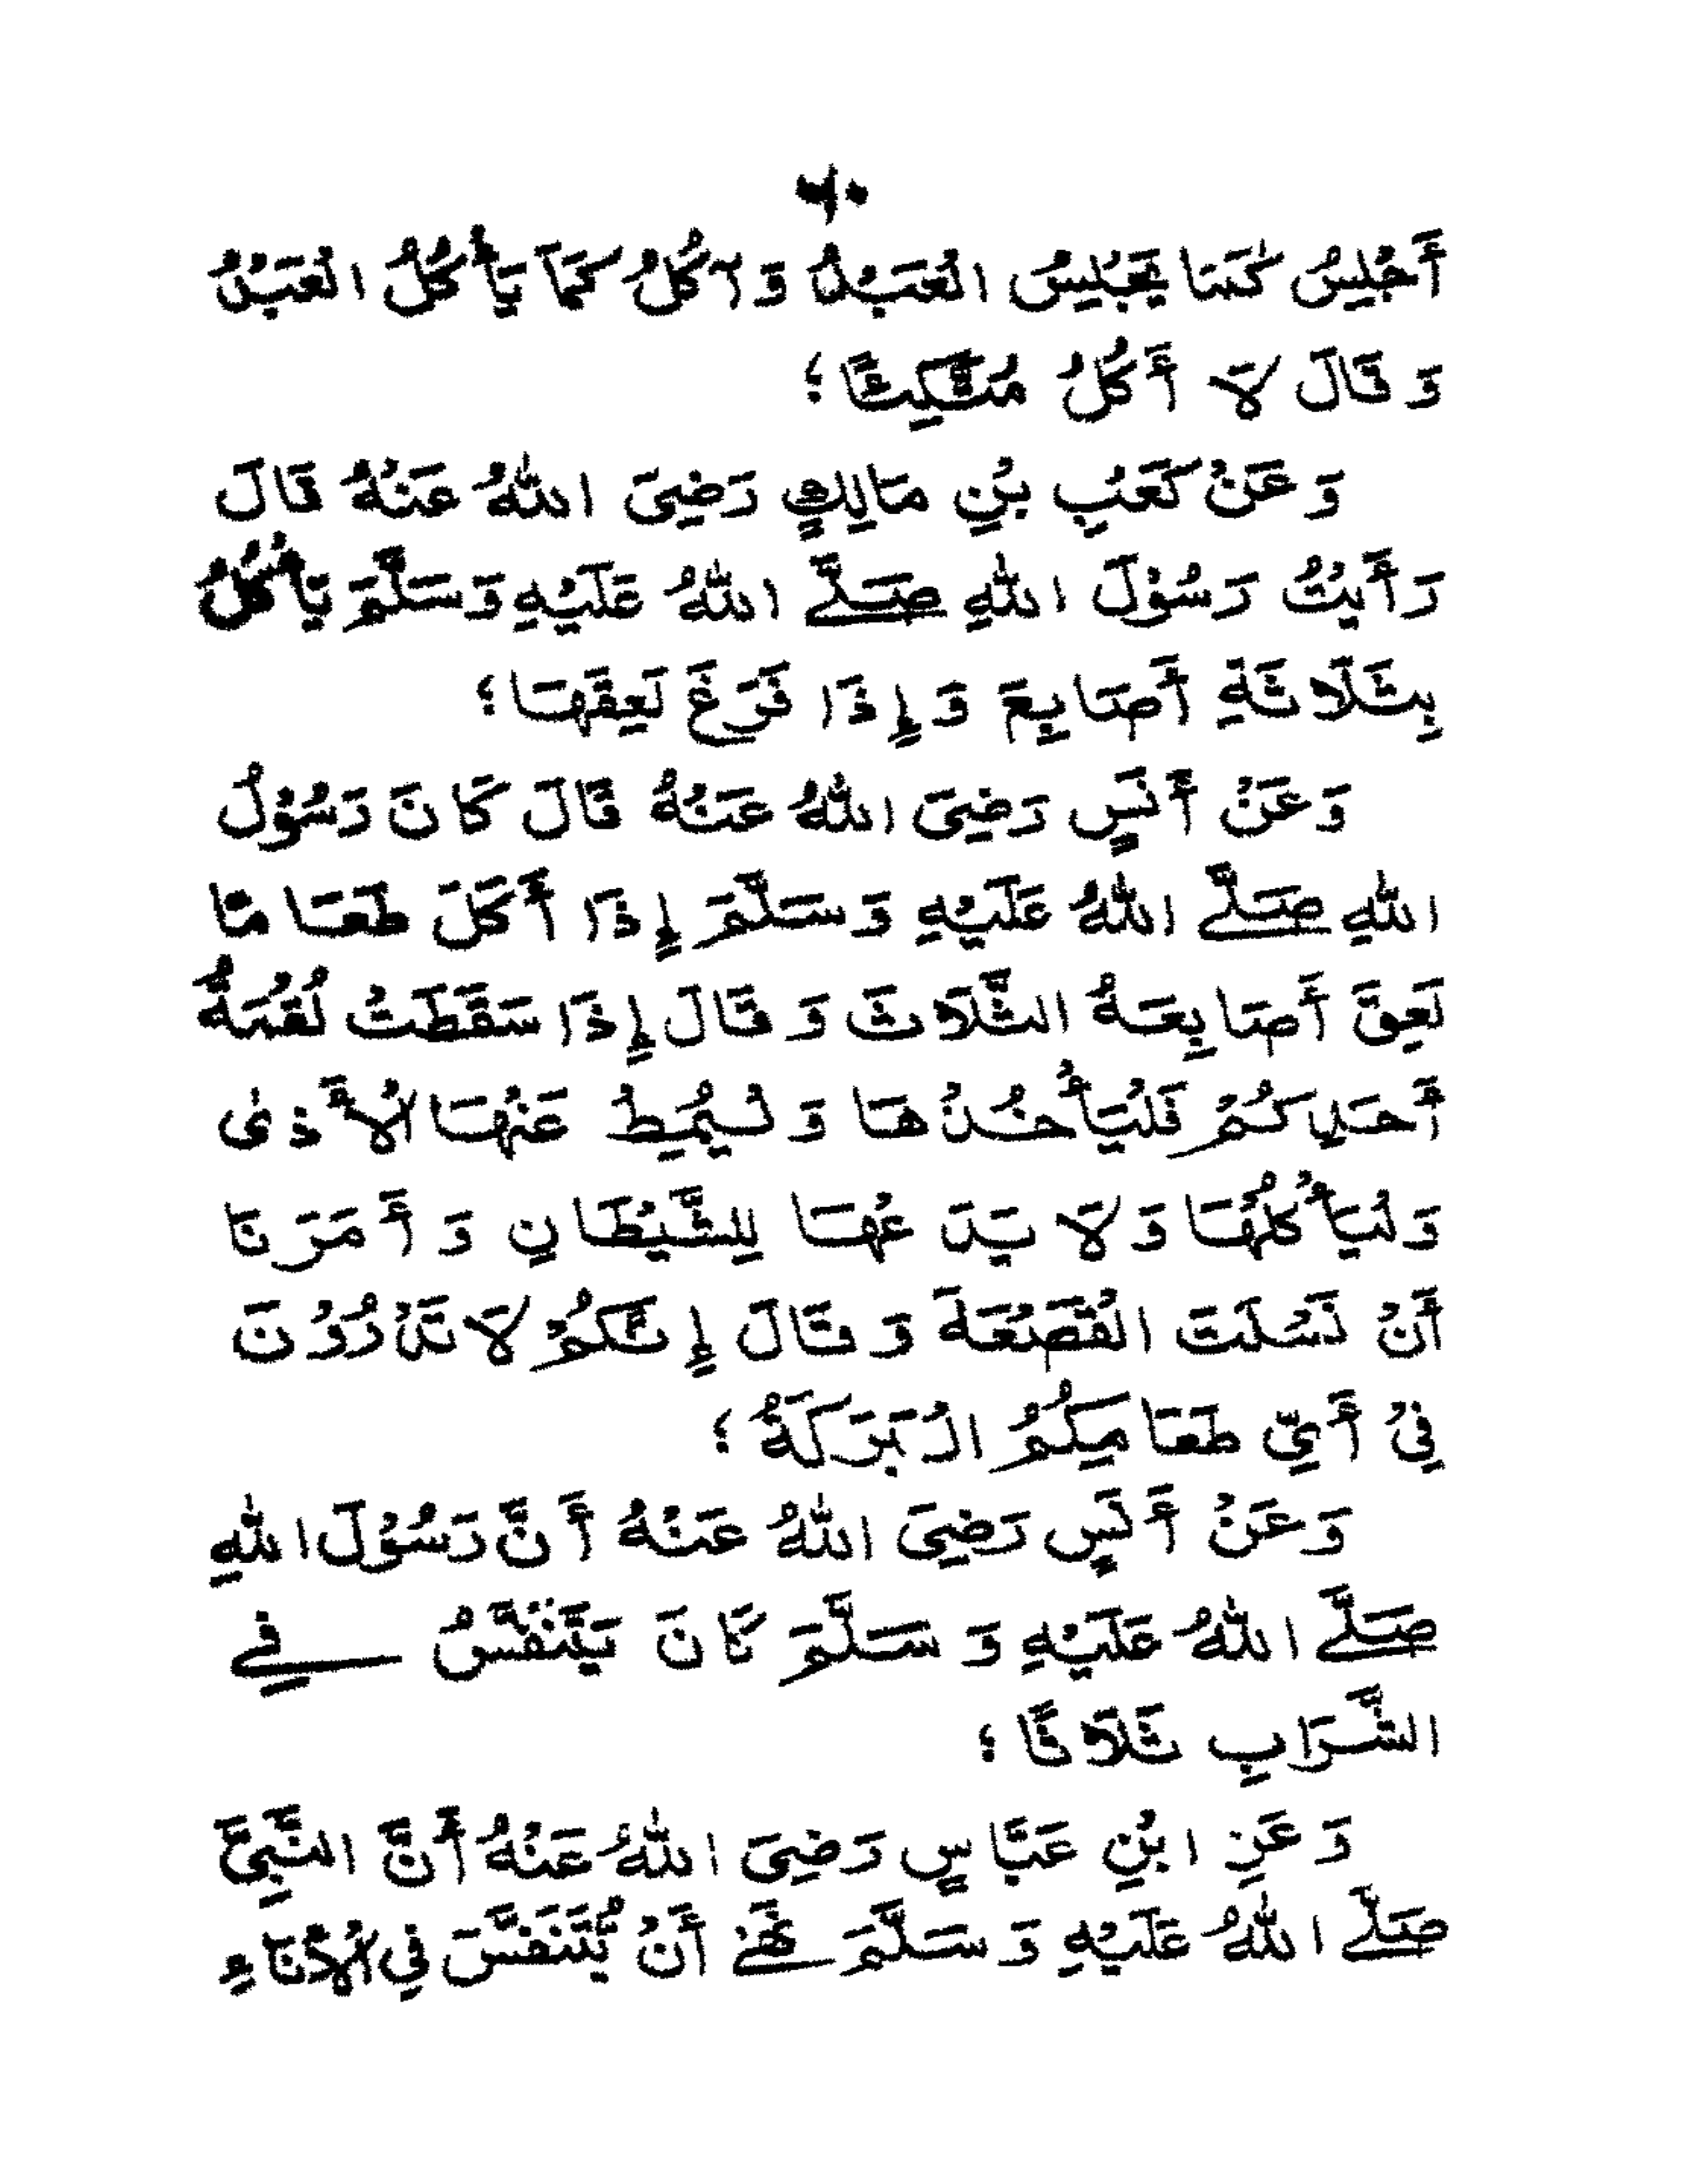 ٦٠
أَجْلِسُ كَمَا يَجْلِسُ الْعَبْدُ وَ آكُلُ كَمَا يَأْكُلُ الْعَبْدُ
وَ قَالَ لَا أٓكُلُ مُتَّكِئًا ؛
وَ عَنْ كَعْبِ بْنِ مَالِكٍ رَضِيَ اللهُ عَنْهُ قَالَ
رَأَيْتُ رَسُوْلَ اللهِ صَلَّے اللهُ عَلَيْهِ وَسَلَّمَ يَأْكُلُ
بِثَلَاثَةِ أَصَابِعَ وَ إِذَا فَرَغَ لَعِقَهَا ؛
وَ عَنْ أَنَسٍ رَضِيَ اللهُ عَنْهُ قَالَ كَانَ رَسُوْلُ
اللهِ صَلَّے اللهُ عَلَيْهِ وَ سَلَّمَ إِذَا أَكَلَ طَعَامًا
لَعِقَ أَصَابِعَهُ الثَّلَاثَ وَ قَالَ إِذَا سَقَطَتْ لُقْمَةُ
أَحَدِكُمْ فَلْيَأْخُذْهَا وَ لْيُمِطْ عَنْهَا الْأَذٰى
وَلْيَأْكُلْهَا وَ لَا يَدَعْهَا لِلشَّيْطَانِ وَ أَمَرَنَا
أَنْ نَسْلَتَ الْقَصْعَةَ وَ قَالَ إِنَّكُمْ لَا تَدْرُوْنَ
فِيْ أَيِّ طَعَامِكُمُ الْبَرَكَةُ ؛
وَ عَنْ أَنَسٍ رَضِيَ اللهُ عَنْهُ أَنَّ رَسُوْلَ اللهِ
صَلَّے اللهُ عَلَيْهِ وَ سَلَّمَ كَانَ يَتَنَفَّسُ فِے
الشَّرَابِ ثَلَاثًا ؛
وَ عَنِ ابْنِ عَبَّاسٍ رَضِيَ اللهُ عَنْهُ أَنَّ النَّبِيَّ
صَلَّے اللهُ عَلَيْهِ وَ سَلَّمَ نَهٰے أَنْ يُتَنَفَّسَ فِي الْإِنَاءِ